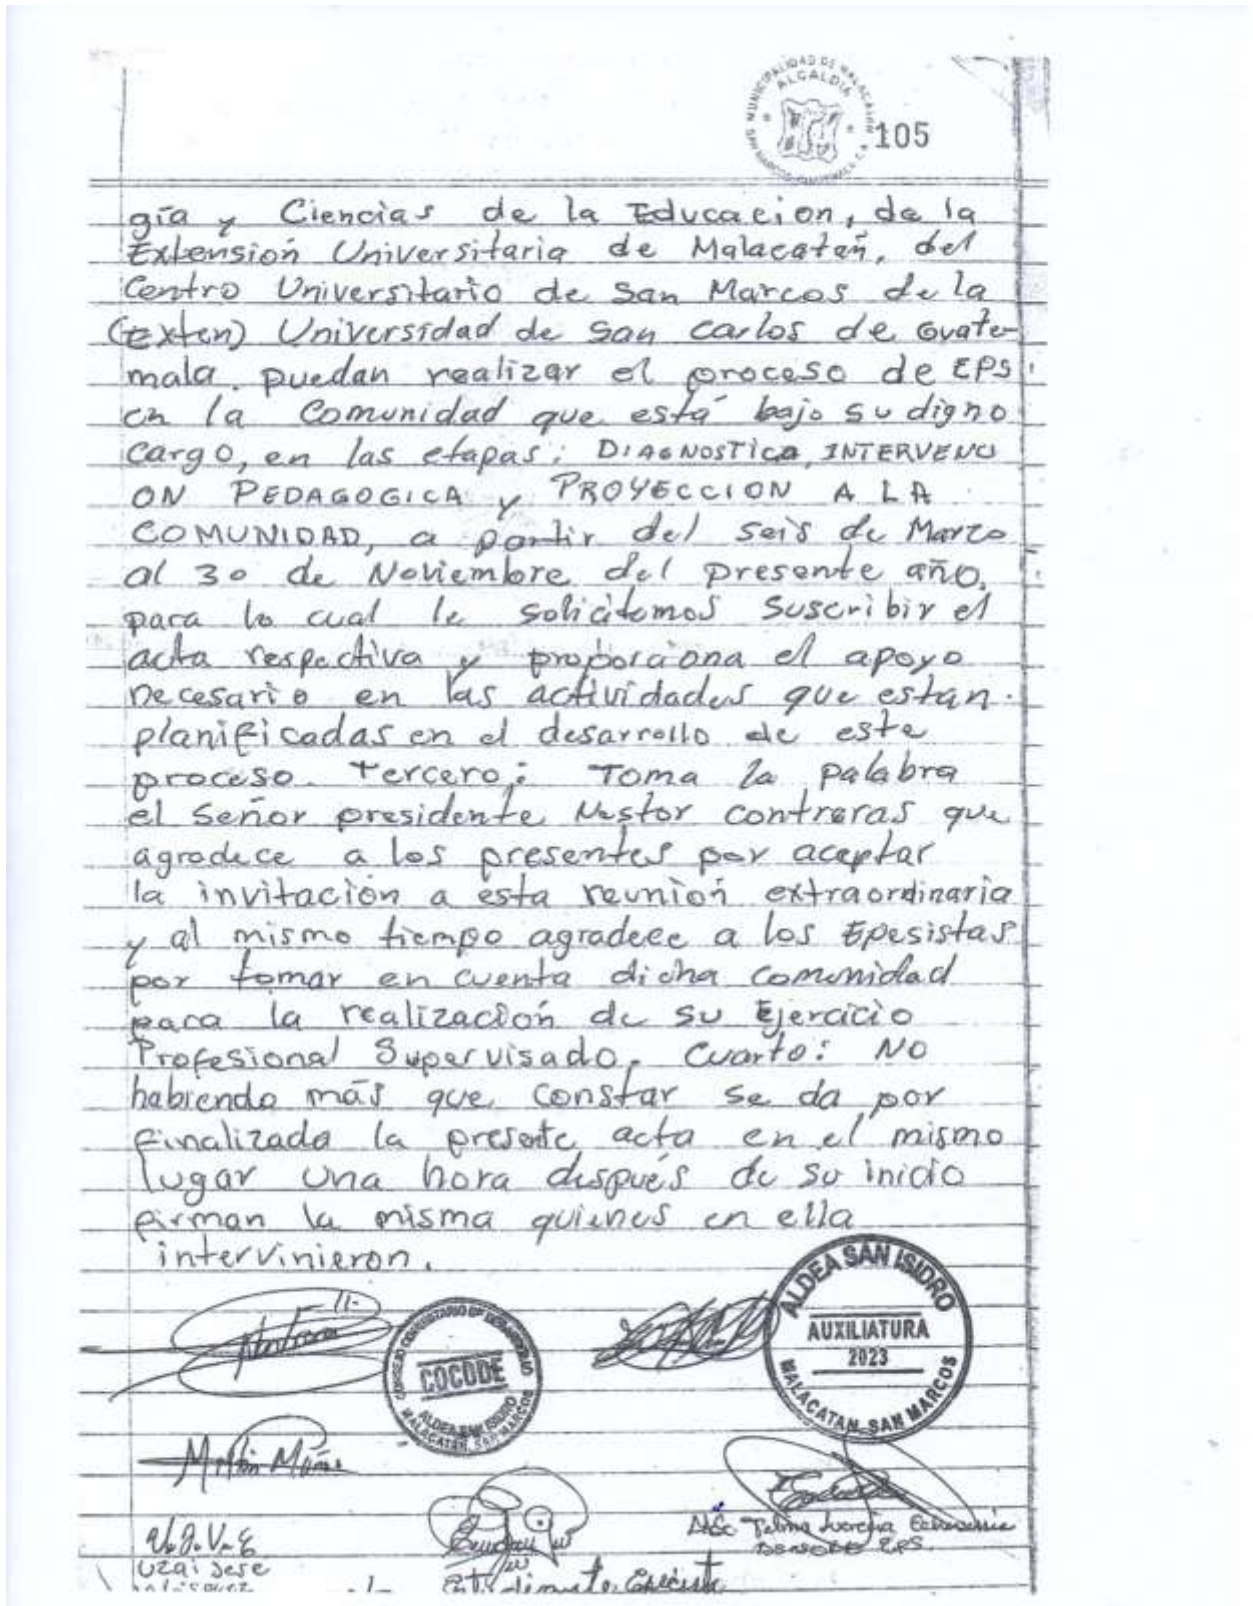 MUNICIPALIDAD DE MALACATAN
ALCALDIA
105
gía y Ciencias de la Educacion, de la
Extensión Universitaria de Malacatán, del
Centro Universitario de San Marcos de la
(exten) Universidad de San Carlos de Guate-
mala. puedan realizar el proceso de EPS
en la Comunidad que está bajo su digno
cargo, en las etapas: DIAGNOSTICA, INTERVENCI
ON PEDAGOGICA y PROYECCION A LA
COMUNIDAD, a partir del seis de Marzo
al 30 de Noviembre del presente año.
para lo cual le solicitamos suscribir el
acta respectiva y proporciona el apoyo
necesario en las actividades que están
planificadas en el desarrollo de este
proceso. Tercero: Toma la palabra
el Señor presidente Nestor contreras que
agradece a los presentes por aceptar
la invitación a esta reunión extraordinaria
y al mismo tiempo agradece a los Epesistas
por tomar en cuenta dicha comunidad
para la realización de su Ejercicio
Profesional Supervisado. Cuarto: No
habiendo más que constar se da por
finalizada la presente acta en el mismo
lugar una hora después de su inicio
firman la misma quienes en ella
intervinieron.
CONSEJO COMUNITARIO DE DESARROLLO
COCODE
ALDEA SAN ISIDRO
MALACATAN, SAN MARCOS
ALDEA SAN ISIDRO
AUXILIATURA
2023
MALACATAN, SAN MARCOS
U.J.V.E
Uzai Jese
Estudiante Epesista
MSc. Telma Lorena Echeverria
ASESORA EPS.